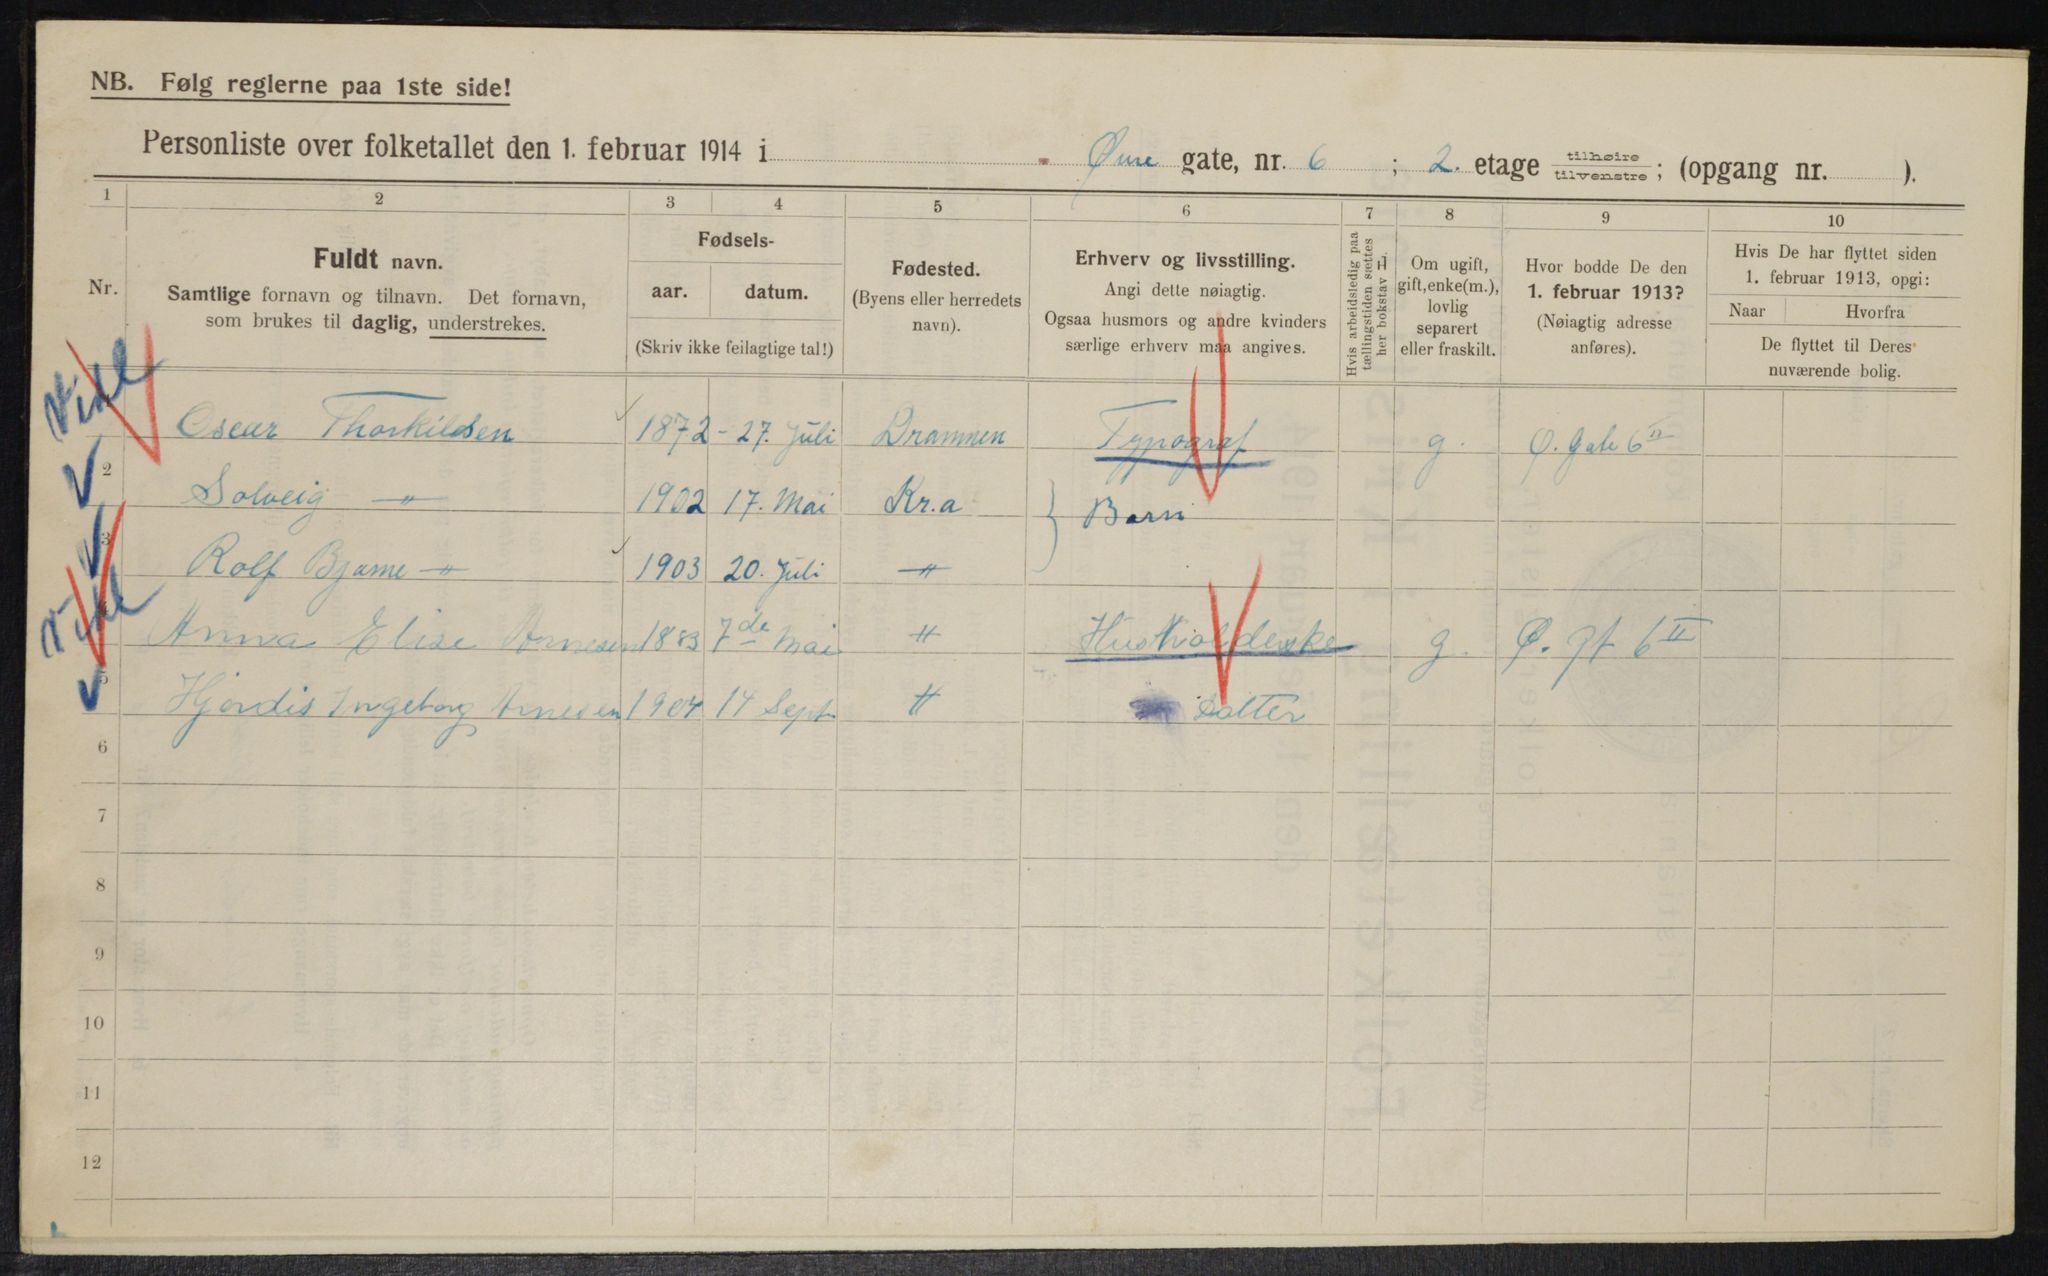 NB. Følg reglerne paa 1ste side!
Personliste over folketallet den 1. februar 1914 i Øvre gate, nr. 6 ; 2. etage tilhøire tilvenstre ; (opgang nr. ).
1 2 3 4 5 6 7 8 9 10
Nr.
Fuldt navn.
Samtlige fornavn og tilnavn. Det fornavn,
som brukes til daglig, understrekes.
Fødsels-
aar. datum.
(Skriv ikke feilagtige tal!)
Fødested.
(Byens eller herredets
navn).
Erhverv og livsstilling.
Angi dette nøiagtig.
Ogsaa husmors og andre kvinders
særlige erhverv maa angives.
Hvis arbeidsledig paa
tællingstiden sættes
her bokstav L.
Om ugift,
gift, enke(m.),
lovlig
separert
eller fraskilt.
Hvor bodde De den
1. februar 1913?
(Nøiagtig adresse
anføres).
Hvis De har flyttet siden
1. februar 1913, opgi:
Naar Hvorfra
De flyttet til Deres
nuværende bolig.
1 Oscar Thorkildsen 1872 - 27. Juli Drammen Typograf g. Ø. Gate 6 II
2 Solveig -"- 1902 17. Mai Kr.a } Barn
3 Rolf Bjarne -"- 1903 20. Juli -"-
4 Anna Elise Arnesen 1883 7de Mai " Husholderske g. Ø. gt 6 II
5 Hjørdis Ingeborg Arnesen 1904 14 Sept " Datter
6
7
8
9
10
11
12